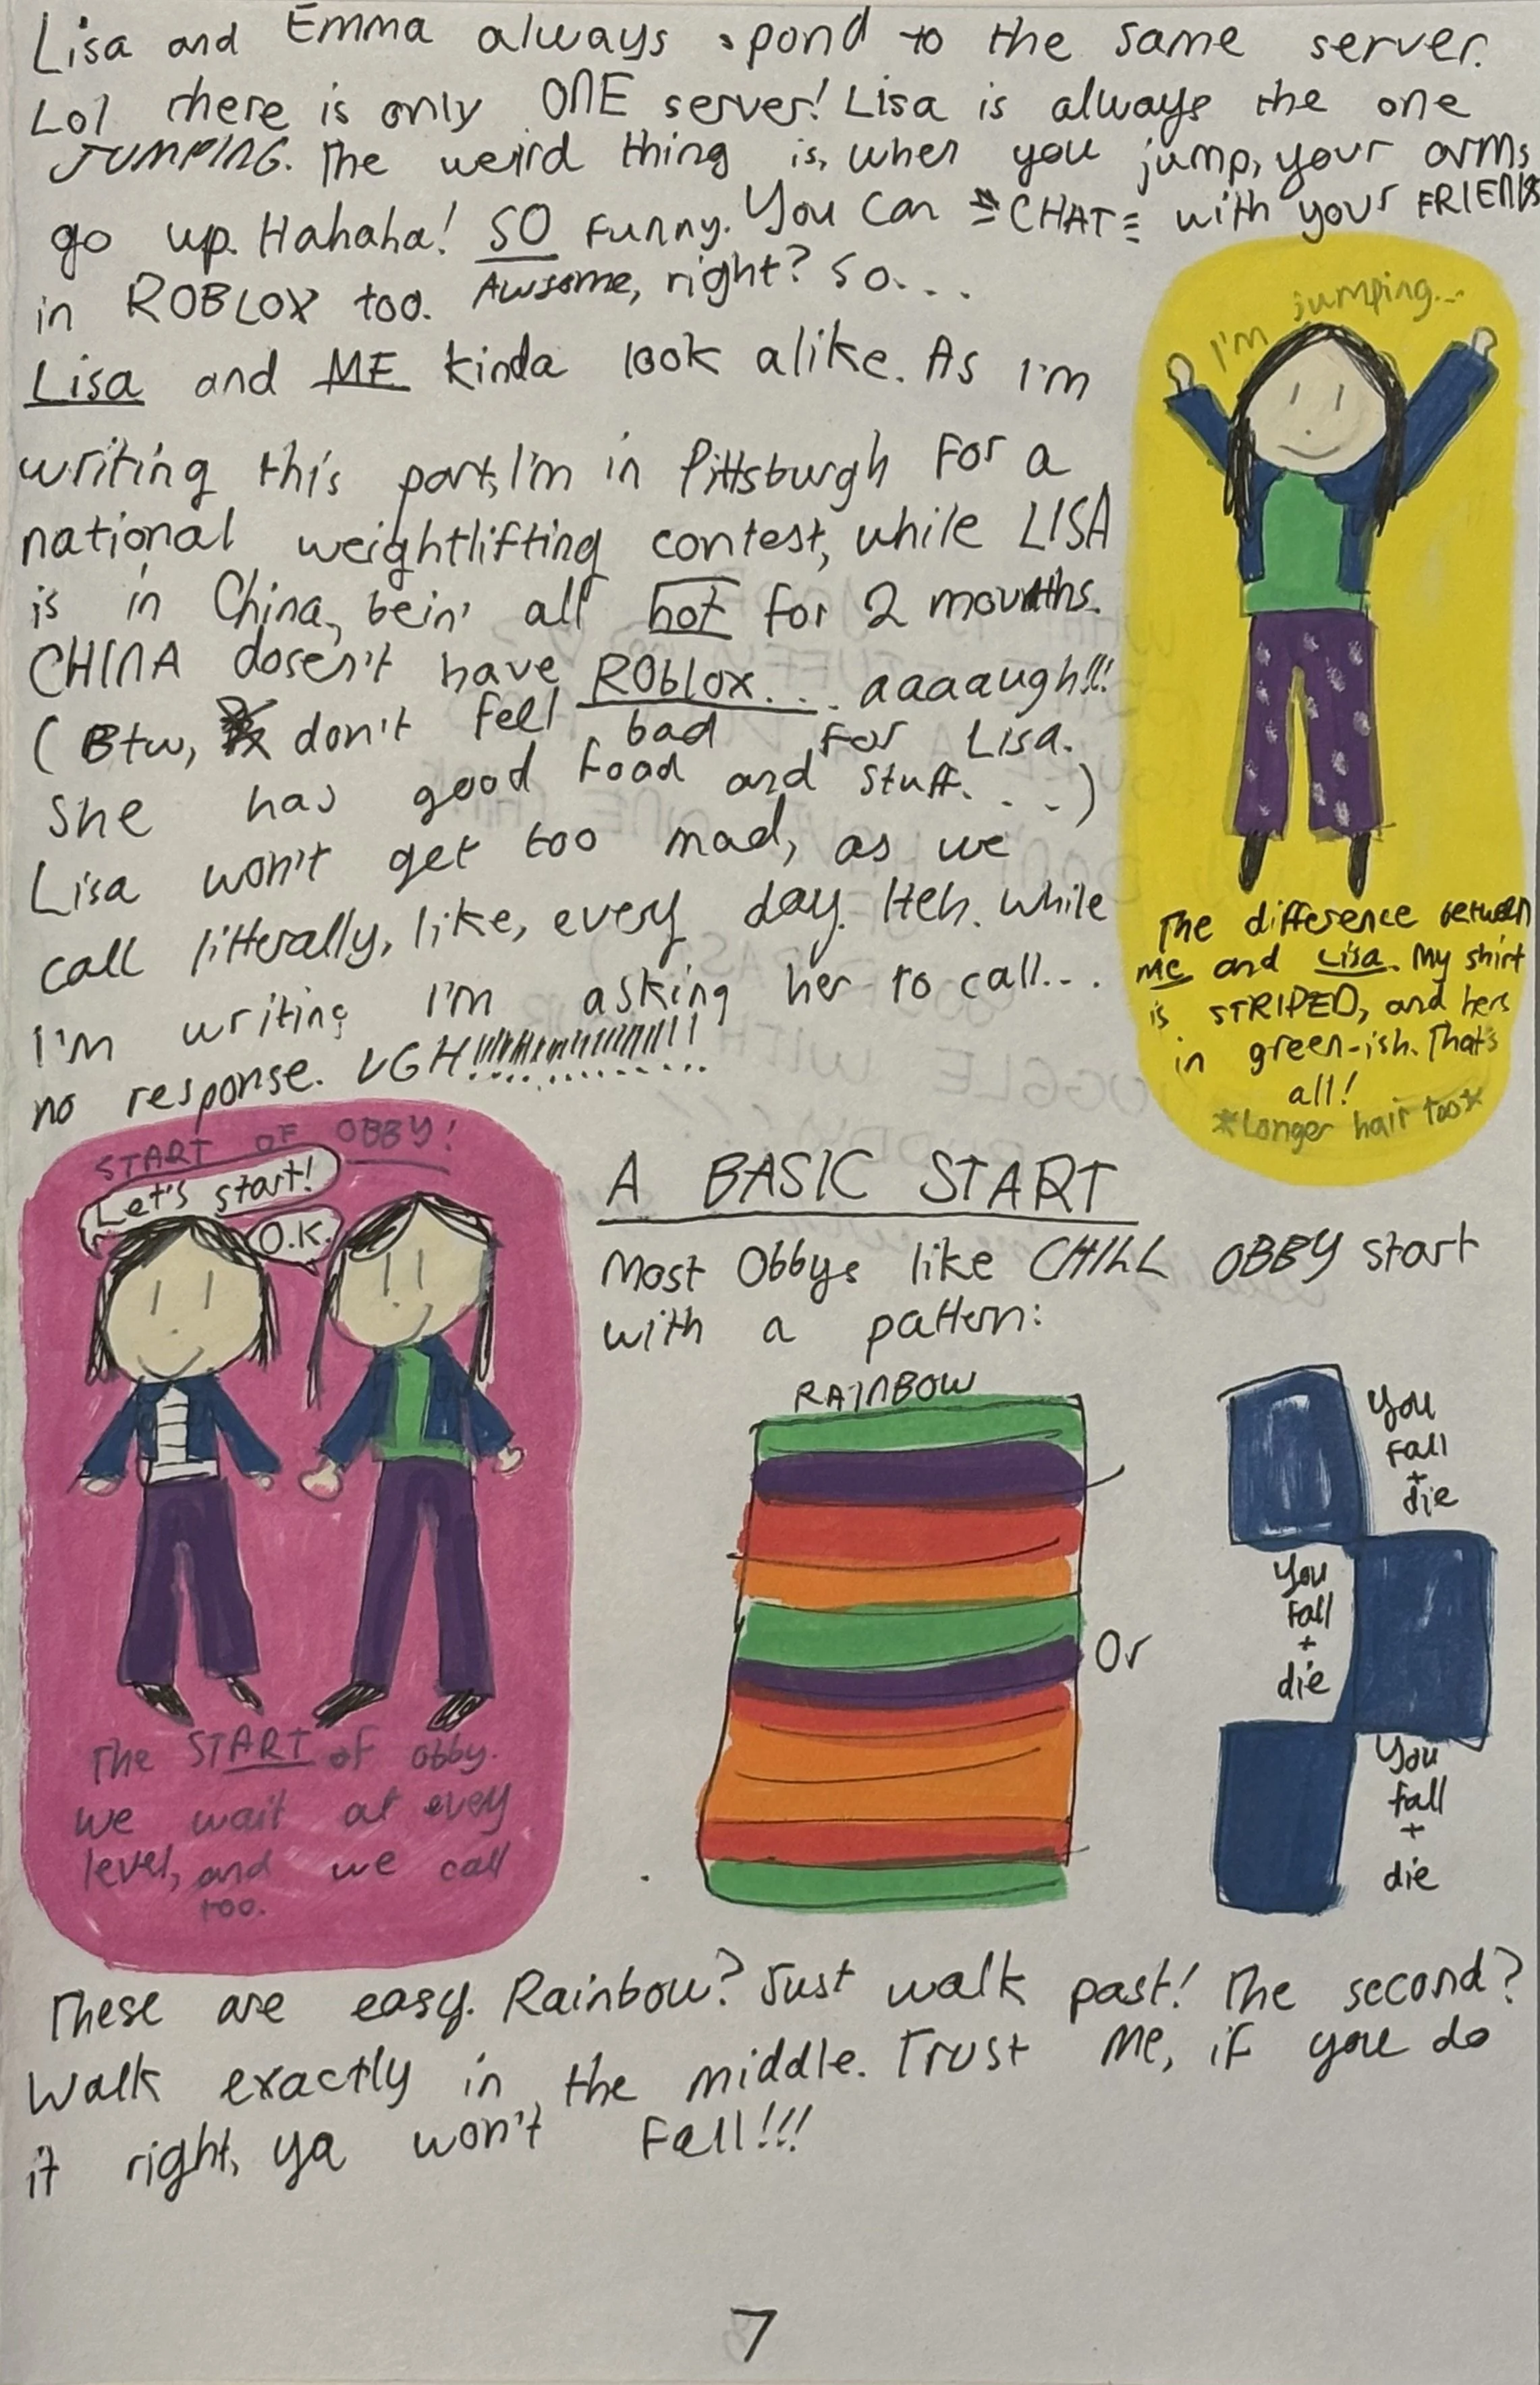 Lisa and Emma always spond to the same server.
Lol there is only ONE server! Lisa is always the one
JUMPING. The weird thing is, when you jump, your arms
go up. Hahaha! SO funny. You can CHAT with your FRIENDS
in ROBLOX too. Awsome, right? So...
Lisa and ME kinda look alike. As I'm
writing this part, I'm in Pittsburgh for a
national weightlifting contest, while LISA
is in China, bein' all hot for 2 mounths.
CHINA dosen't have ROblox... aaaaaugh!!!
(Btw, don't fell bad for Lisa.
She has good food and stuff....)
Lisa won't get too mad, as we
call litterally, like, every day. Heh. While
I'm writing I'm asking her to call...
no response. UGH!!!!!!!!!!!!!!!!
I'm jumping...
The difference between
ME and Lisa. My shirt
is STRIPED, and hers
in green-ish. That's
all!
*Longer hair too*
START OF OBBY!
Let's start!
O.K.
The START of obby.
We wait at every
level, and we call
too.
A BASIC START
Most Obbys like CHILL OBBY start
with a pattern:
RAINBOW
Or
You
fall
+
die
You
fall
+
die
You
fall
+
die
These are easy. Rainbow? Just walk past! The second?
Walk exactly in the middle. Trust me, if you do
it right, ya won't fall!!!
7